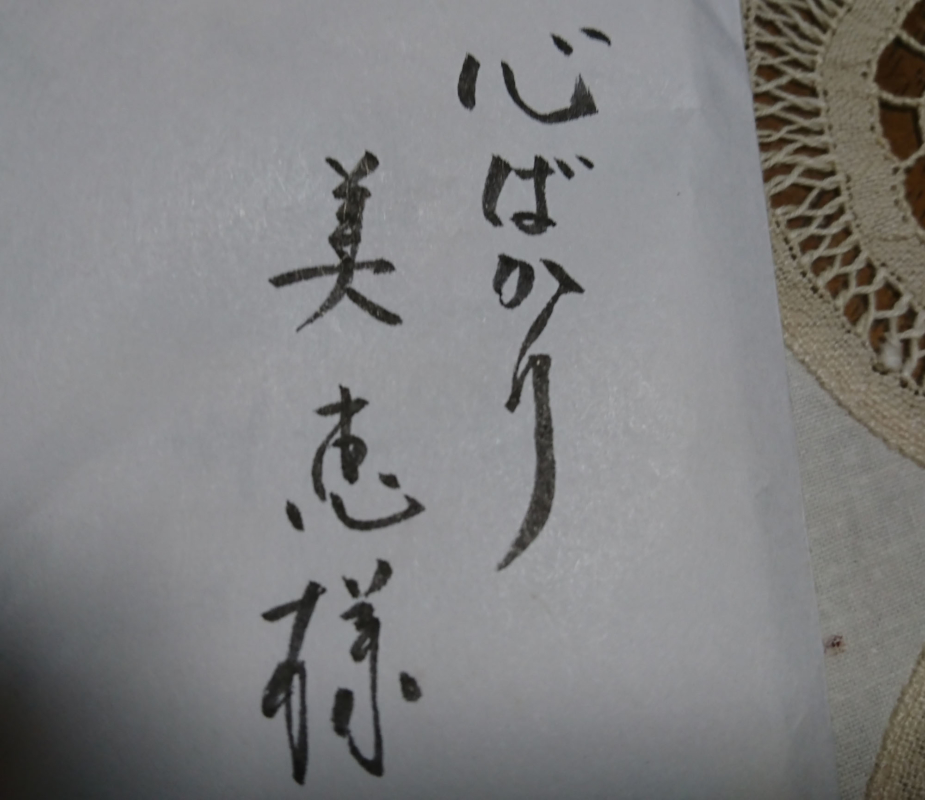 心ばかり
美恵様